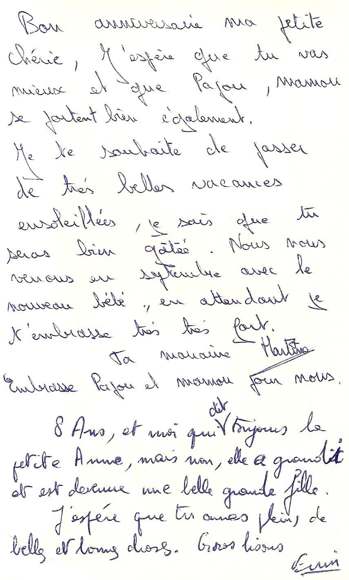 Bon anniversaire ma petite
chérie, J'espère que tu vas
mieux et que Pajou, mamou
se portent bien également.
Je te souhaite de passer
de très belles vacances
ensoleillées, je sais que tu
seras bien gâtée. Nous nous
venons en septembre avec le
nouveau bébé, en attendant je
t'embrasse très très fort.
Ta marraine Martine
Embrasse Pajou et mamou pour nous.
8 Ans, et moi qui dit toujours la
petite Anne, mais non, elle a grandit
et est devenue une belle grande fille.
J'espère que tu auras pleins de
belles et bonnes choses. Gros bisous